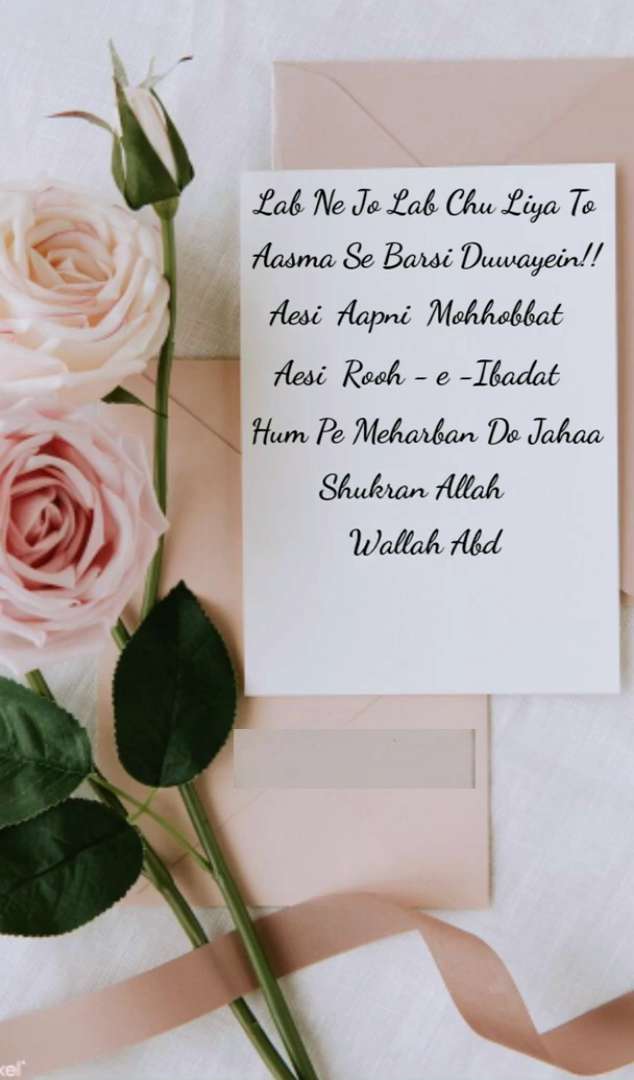 Lab Ne Jo Lab Chu Liya To
Aasma Se Barsi Duwayein!!
Aesi Aapni Mohhobbat
Aesi Rooh - e -Ibadat
Hum Pe Meharban Do Jahaa
Shukran Allah
Wallah Abd
xel